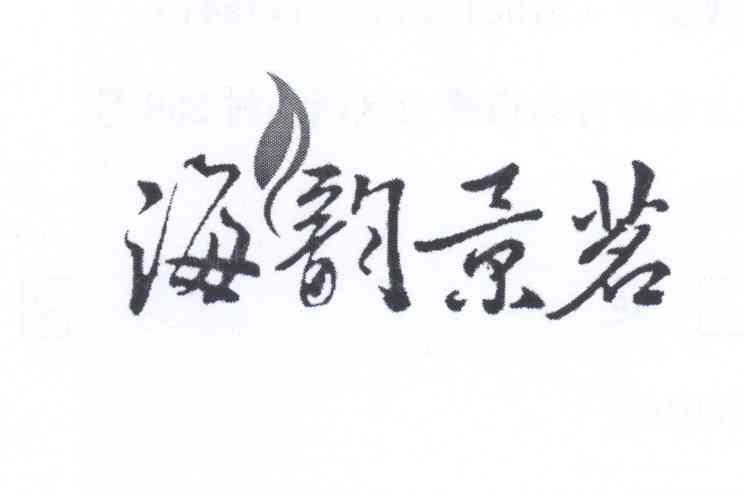 海韵景茗